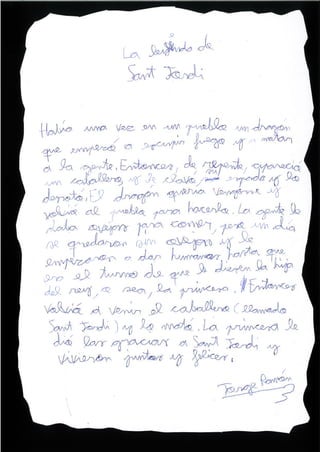 La leyenda de
Sant Jordi
Había una vez en un pueblo un dragón
que empezó a escupir fuego y a matar
a la gente. Entonces, de repente, apareció
un caballero, y le clavó su espada y lo
derrotó. El dragón quería vengarse y
volvió al pueblo para hacerlo. La gente le
daba ovejas para comer, pero un día
se quedaron sin ovejas y le
empezaron a dar humanos, hasta que
era el turno de que le diesen la hija
del rey, o sea, la princesa. Entonces
volvió a venir el caballero (llamado
Sant Jordi) y lo mató. La princesa le
dió las gracias a Sant Jordi y
vivieron juntos y felices.